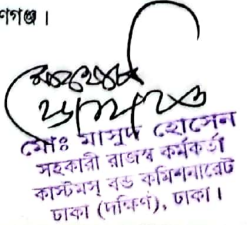 ণগঞ্জ।
মোঃ মাসুদ হোসেন
সহকারী রাজস্ব কর্মকর্তা
কাস্টমস্ বন্ড কমিশনারেট
ঢাকা (দক্ষিণ), ঢাকা।